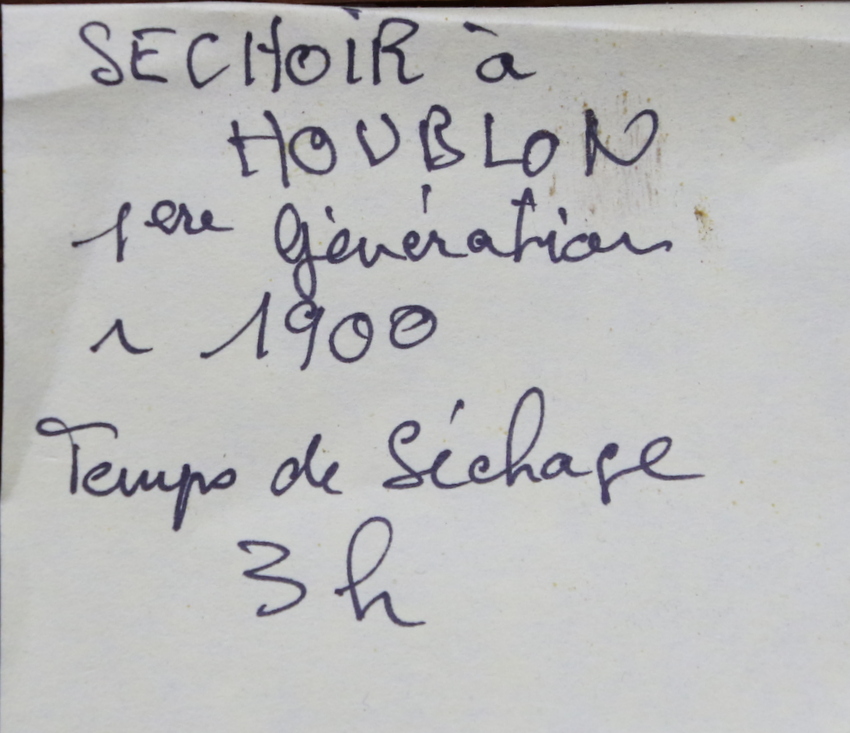 SECHOIR à
HOUBLON
1ere Génération
~ 1900
Temps de Séchage
3h